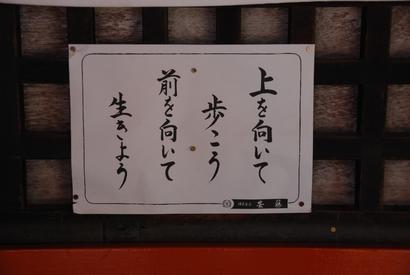 上を向いて
歩こう
前を向いて
生きよう